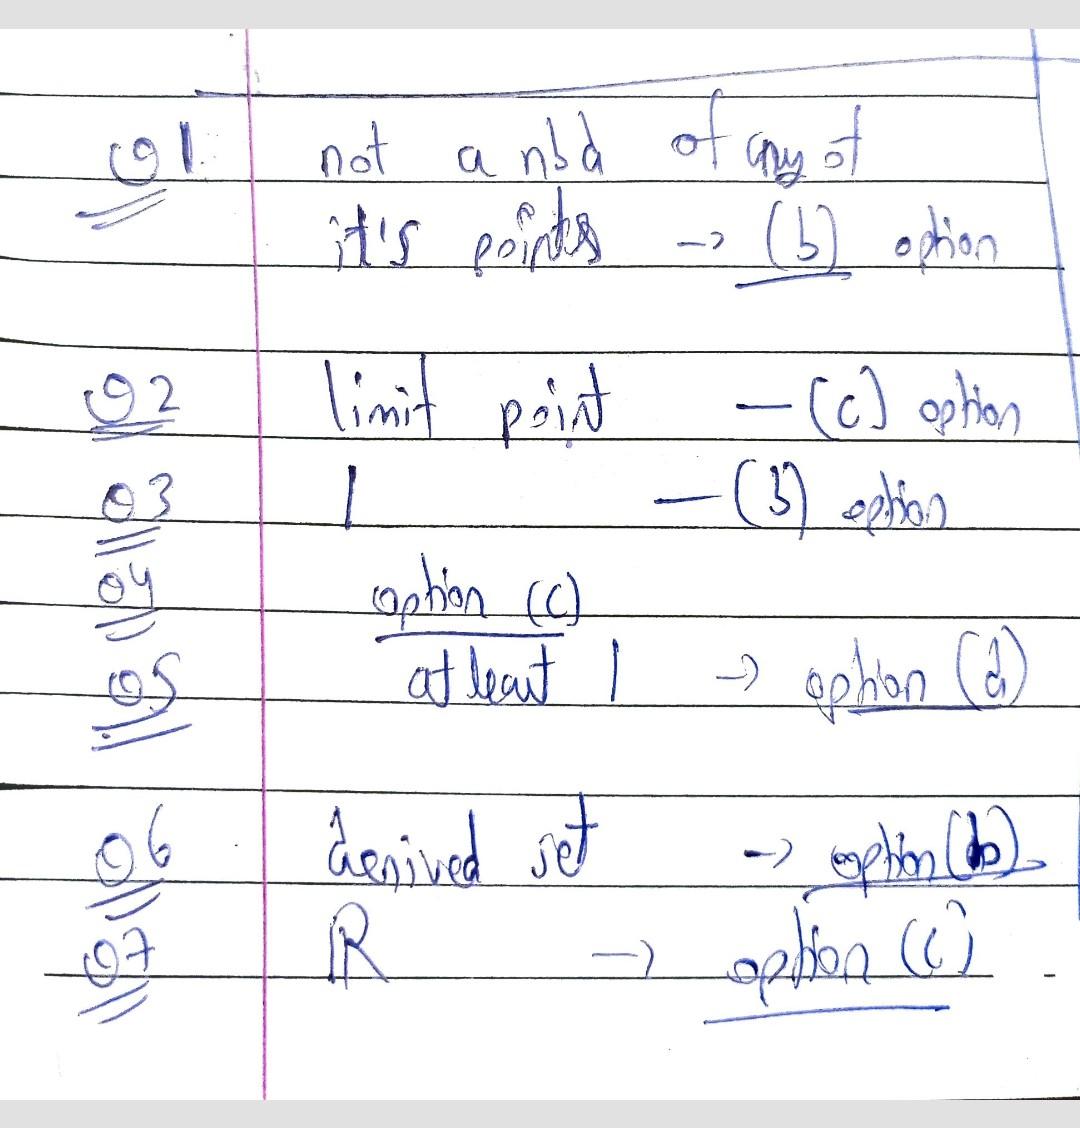 Q1. not a nbd of any of
it's points -> (b) option
Q2 limit point - (c) option
Q3 1 - (b) option
Q4 option (c)
Q5 at least 1 -> option (d)
Q6 derived set -> option (b)
Q7 ℝ -> option (c)